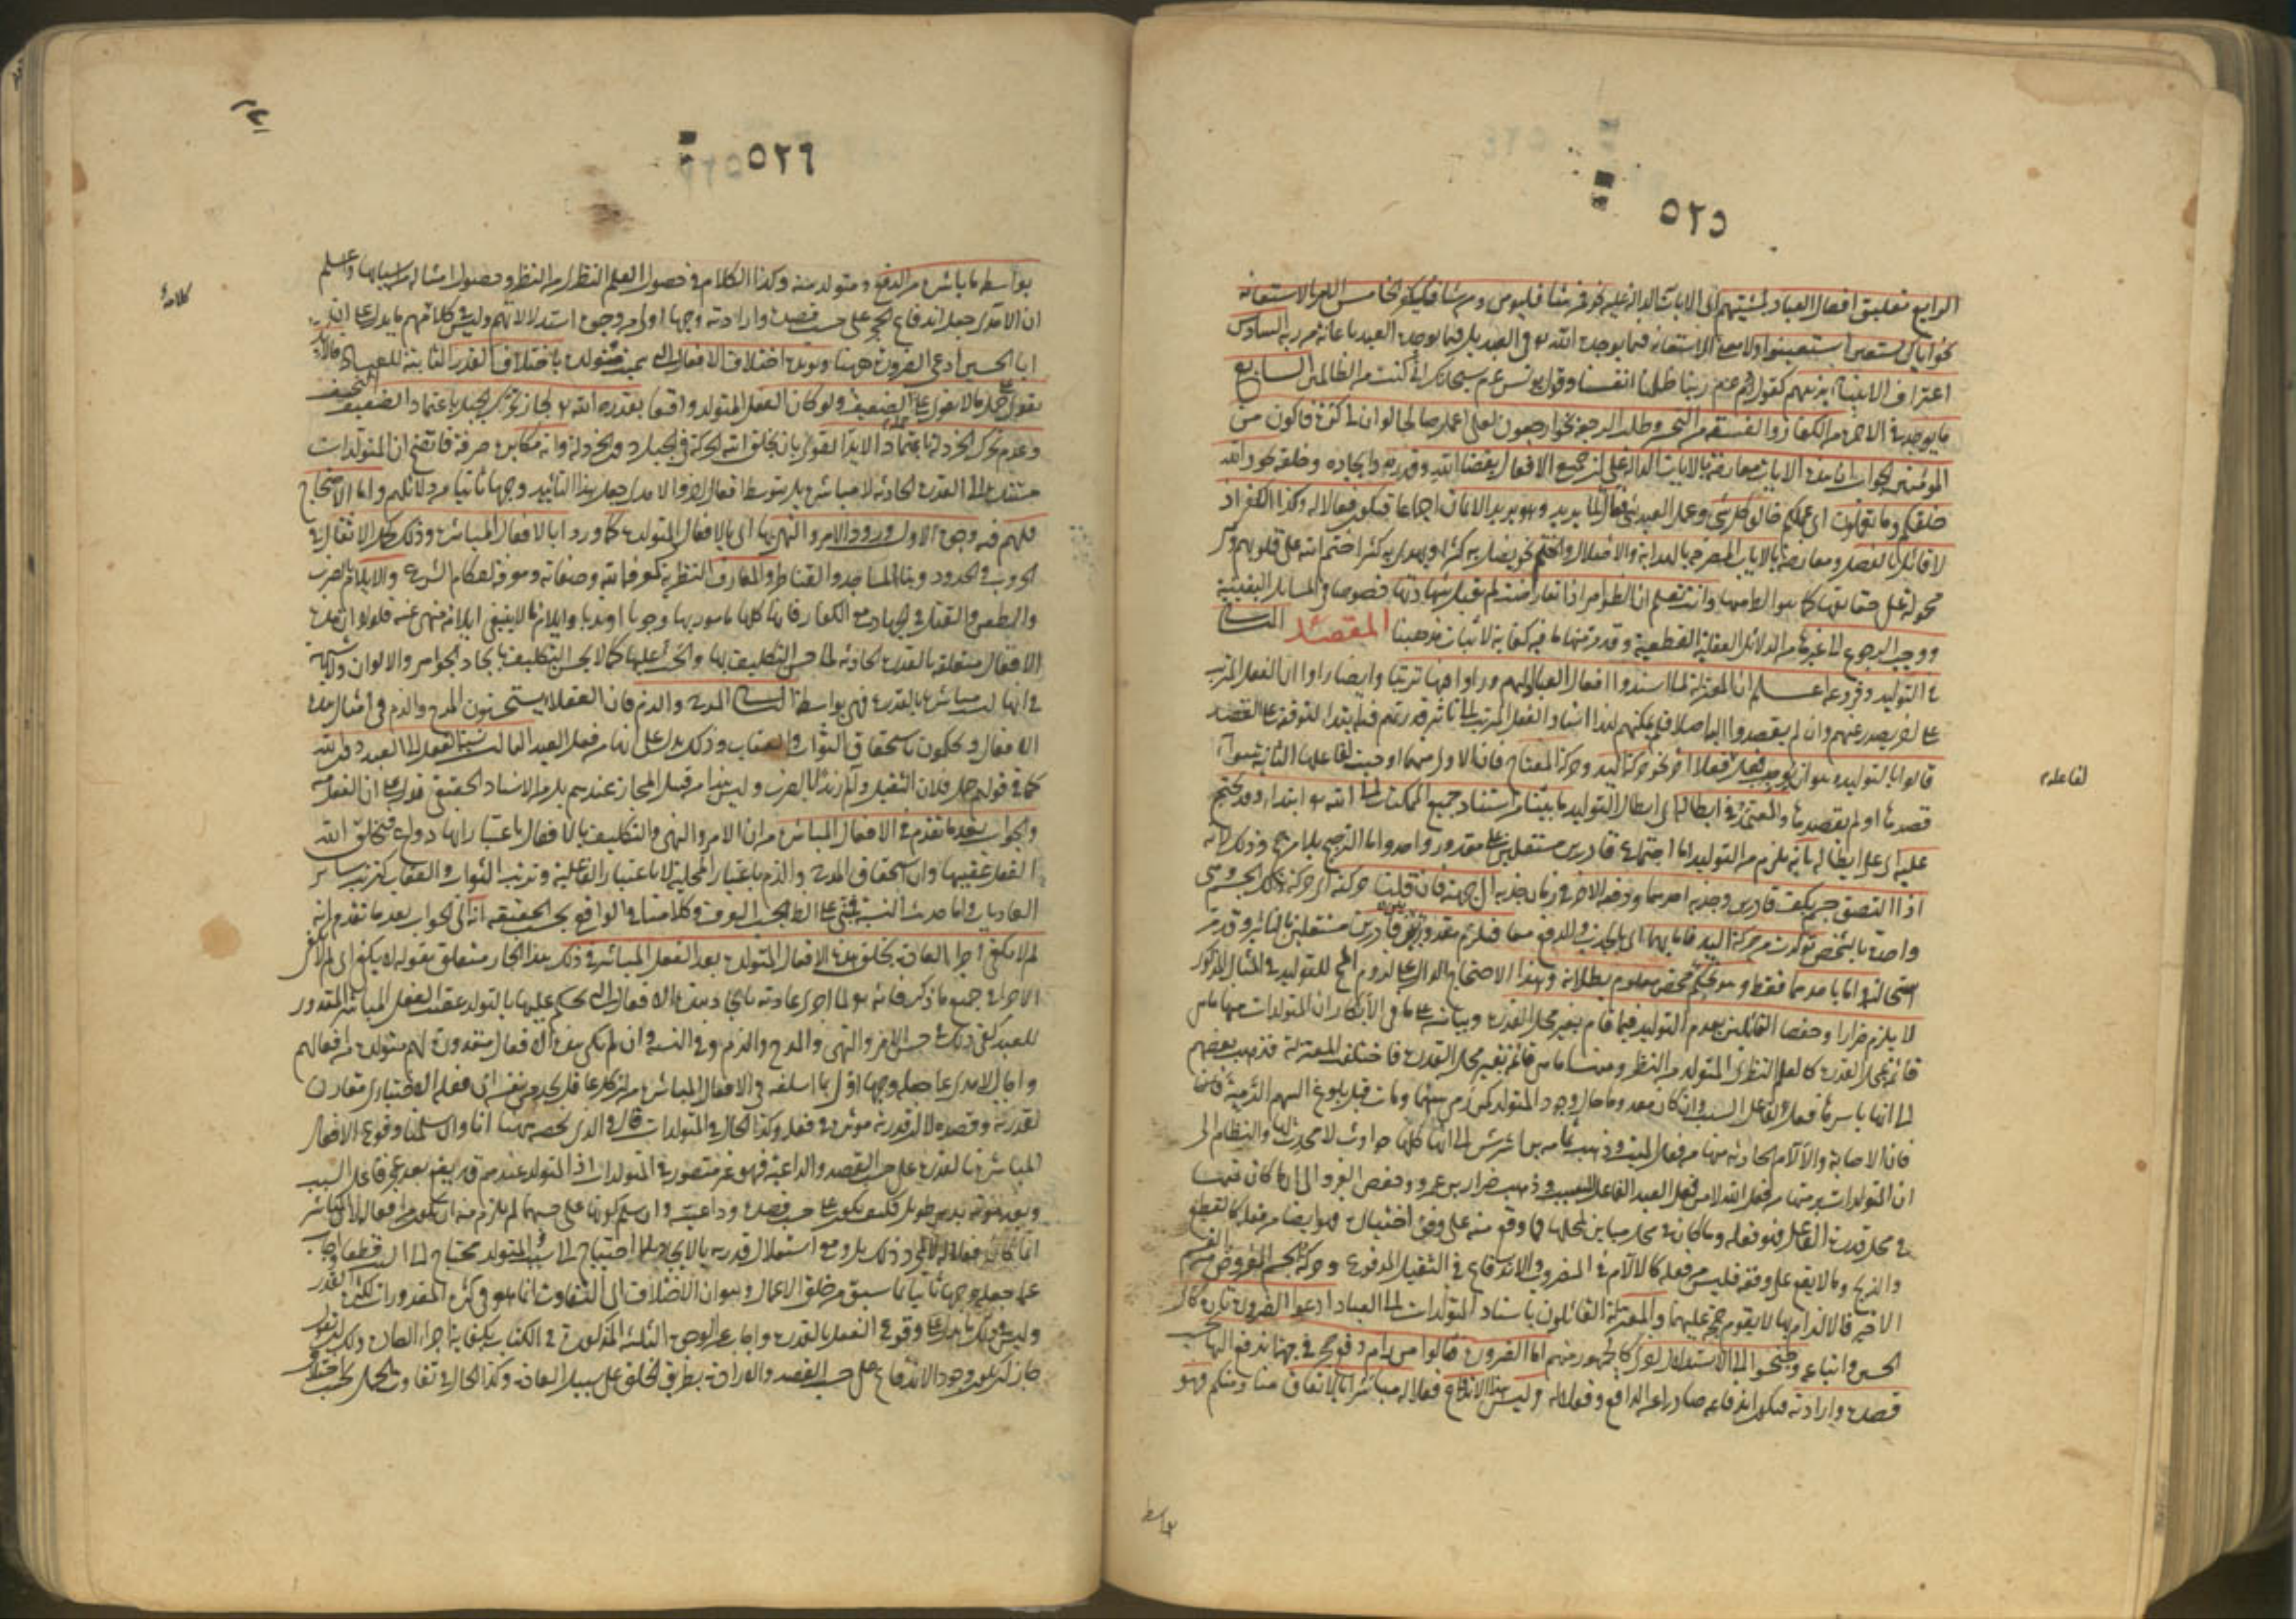 ٥٢٥
الرابع تعليق افعال العباد بمشيتهم اى الايات الدالة عليه نحو فمن شاء فليؤمن ومن شاء فليكفر الخامس الامر بالاستعانة
نحو اياك نستعين استعينوا ولا معنى للاستعانة فيما يوجده الله في العبد بل فيما يوجده العبد باعانة من ربه السادس
اعتراف الانبياء بذنبهم كقول آدم عم ربنا ظلمنا انفسنا وقول يونس عم سبحانك انى كنت من الظالمين السابع
ما يوجد في الاخرة من الكفار والفسقة من التحسر وطلب الرجعة نحو ارجعون لعلى اعمل صالحا لو ان لى كرة فاكون من
المؤمنين الجواب ان هذه الايات معارضة بالايات الدالة على ان جميع الافعال بقضاء الله وقدره وايجاده وخلقه نحو والله
خلقكم وما تعملون اى عملكم خالق كل شئ وعمل العبد شئ فعال لما يريد وهو يريد الايمان اجماعا فيكون فعالا له وكذا الكفر اذ
لا قائل بالفصل ومعارضة بالايات المصرحة بالهداية والاضلال والختم نحو يضل به كثيرا ويهدى به كثيرا ختم الله على قلوبهم وهى
محمولة على حقائقها كما هو الظاهر منها وانت تعلم ان الظواهر اذا تعارضت لم تقبل شهادتها خصوصا في المسائل اليقينية
ووجب الرجوع الى غيرها من الدلائل العقلية القطعية وقد مر منها ما فيه كفاية لاثبات مذهبنا المقصد
في التوليد وفروعه اعلم ان المعتزلة لما اسندوا افعال العباد اليهم وراوا فيها ترتبا وايضا راوا ان الفعل المرتب
على اخر يصدر عنهم وان لم يقصدوا اليه اصلا فلم يمكنهم لهذا اسناد الفعل المرتب الى تاثير قدرتهم فيه ابتداء لتوقفه على القصد
قالوا بالتوليد وهو ان يوجب فعل لفاعله فعلا آخر نحو حركة اليد وحركة المفتاح فان الاولى منهما اوجبت لفاعلها الثانية سواء
لفاعله
قصدها او لم يقصدها والمعتمد في ابطاله اى ابطال التوليد ما بينا من استناد جميع الممكنات الى الله تعالى ابتداء وقد يحتج
عليه اى على ابطاله بانه يلزم من التوليد اما اجتماع قادرين مستقلين على مقدور واحد واما الترجيح بلا مرجح وذلك لانه
اذا التصق جسم بكف قادرين وجذبه احدهما ودفعه الاخر في زمان جذبه الى جهته فان قلنا حركته اى حركة ذلك الجسم وهى
واحدة بالشخص تولدت من حركة اليد فاما بهما اى بالجذب والدفع معا فيلزم مقدور بين قادرين مستقلين بالتاثير وقد مر
استحالته اما باحدهما فقط وهو تحكم محض معلوم بطلانه وبهذا الاحتجاج الدال على لزوم المحال للتوليد في المثال المذكور
لا يلزم ضرارا وحفصا القائلين بعدم التوليد فيما قام بغير محل القدرة وبيانه على ما في الابكار ان المتولدات منها ما هى
قائمة بمحل القدرة كالعلم النظرى المتولد من النظر ومنها ما هى قائمة بغير محل القدرة فاختلف المعتزلة فذهب بعضهم
الى انها باسرها فعل لفاعل السبب وان كان معدوما حال وجود المتولد كمن رمى سهما ومات قبل بلوغ السهم الرمية فانها
فان الاصابة والآلام الحادثة منها من فعل الميت وذهب ثمامة بن اشرس الى انها كلها حوادث لا محدث لها والنظام الى
ان المتولدات برمتها من فعل الله لا من فعل العبد الفاعل للسبب وذهب ضرار بن عمرو وحفص الفرد الى ان ما كان منها
في محل قدرة الفاعل فهو فعله وما كان في محل مباين لمحلها فما وقع منه على وفق اختياره فهو ايضا من فعله كالقطع
والذبح وما لا يقع على وفقه فليس من فعله كالآلام في المضروب والاندفاع في الثقيل المدفوع وحركة الجسم المفروض من القسم
الاخير فالالزام بها لا يقوم حجة عليهما والمعتزلة القائلون باسناد المتولدات الى العباد ادعوا الضرورة تارة كابى
الحسين واتباعه وجنحوا الى الاستدلال اخرى كالجمهور منهم اما الضرورة فقالوا من رام دفع حجر في جهة اندفع اليها بحسب
قصده وارادته فيكون اندفاعه صادرا عن الدافع وفعلا له وليس هذا الاندفاع فعلا له مباشرا بالاتفاق منا ومنكم فهو
بواسطة
٥٢٦
بواسطة ما باشره من الدفع ومتولد منه وكذا الكلام في حصول العلم النظرى من النظر وحصول امثاله من اسبابها واعلم
ان الآمدى جعل اندفاع الحجر على حسب قصده وارادته وجها اول من وجوه استدلالاتهم وليس في كلامهم ما يدل على ان
كلامه
ابا الحسين ادعى الضرورة ههنا ويؤيده اختلاف الافعال التى سميت متولدة باختلاف القدر الثابتة للعباد فالايد
يقوى على حمل ما لا يقوى عليه الضعيف ولو كان الفعل المتولد واقعا بقدرة الله تعالى لجاز تحرك الجبل باعتماد الضعيف النحيف
وعدم تحرك الخردلة باعتماد الايد القوى بان يخلق الله الحركة في الجبل دون الخردلة وانه مكابرة صرفة فاتضح ان المتولدات
مستندة الى القدرة الحادثة لا مباشرة بل بتوسط افعال اخر والامدى جعل هذا التاييد وجها ثانيا من دلائلهم واما الاحتجاج
فلهم فيه وجوه الاول ورود الامر والنهى بها اى بالافعال المتولدة كما وردا بالافعال المباشرة وذلك كحمل الاثقال في
الحروب والحدود وبناء المساجد والقناطر والمعارف النظرية كمعرفة الله وصفاته ومعرفة احكام الشرع والايلام بالضرب
والطعن والقتل في الجهاد مع الكفار فانها كلها مامور بها وجوبا او ندبا وايلام ما لا ينبغى ايلامه منهى عنه فلولا ان هذه
الافعال متعلقة بالقدرة الحادثة لما حسن التكليف بها والحث عليها كما لا يحسن التكليف بايجاد الجواهر والالوان ولا شبهة
في انها ليست مباشرة بالقدرة فهى بواسطة الثانى المدح والذم فان العقلاء يستحسنون المدح والذم في امثال هذه
الافعال ويحكمون باستحقاق الثواب والعقاب وذلك يدل على انها من فعل العبد الثالث نسبة الفعل الى العبد دون الله
كما في قولهم حمل فلان الثقيل وآلم زيدا بالضرب وليس هذا من قبيل المجاز عندهم بل من الاسناد الحقيقى فدل على ان الفعل منه
والجواب بعد ما تقدم في الافعال المباشرة من ان الامر والنهى والتكليف بالافعال باعتبار انها دواع فيخلق الله
الفعل عقيبها وان استحقاق المدح والذم باعتبار المحلية لا باعتبار الفاعلية وترتب الثواب والعقاب كترتب سائر
العاديات واما حديث النسبة فمبنى على الظاهر بحسب العرف وكلامنا في الواقع بحسب الحقيقة انه اى الجواب بعد ما تقدم انه
لم لا يكفى اجراء العادة بخلق هذه الافعال المتولدة بعد الفعل المباشر في ذلك هذا الجار متعلق بقوله لا يكفى اى لم لا يكفى
الاجراء في جميع ما ذكر فانه تعالى لما اجرى عادته بايجاد هذه الافعال التى يحكم عليها بالتولد عقيب الفعل المباشر المقدور
للعبد كفى ذلك في حسن الامر والنهى والمدح والذم وفي النسبة وان لم تكن هذه الافعال مقدورة لهم متولدة من افعالهم
واجاب الامدى عما جعله وجها اول بما اسلفه في الافعال المباشرة من ان كل عاقل يجد من نفسه ان فعله الاختيارى مقارن
لقدرته وقصده لا ان قدرته مؤثرة في فعله وكذا الحال في المتولدات قال والذى يخصه ههنا انا وان سلمنا وقوع الافعال
المباشرة بالقدرة على حسب القصد والداعية فهو غير متصور في المتولدات اذ المتولد عندهم قد يقع بعد عجز فاعل السبب
وبعد موته بدهر طويل فكيف يكون على حسب قصده وداعيته وان سلم كونها على حسبهما لم يلزم منه ان يكون من افعاله المباشرة
عما جعله وجها ثانيا بما سبق من خلق الاعمال وهو ان الاختلاف اى التفاوت انما هو في كثرة المقدورات لكثرة القدر
وليس في ذلك ما يدل على وقوع الفعل بالقدرة واجاب عن الوجوه الثلثة المذكورة في الكتاب بكفاية اجراء العادة وذلك انه
جاز ان يكون وجود الاندفاع على حسب القصد والارادة بطريق الخلق على سبيل العادة وكذا الحال في تفاوت الحمل بحسب اختلاف